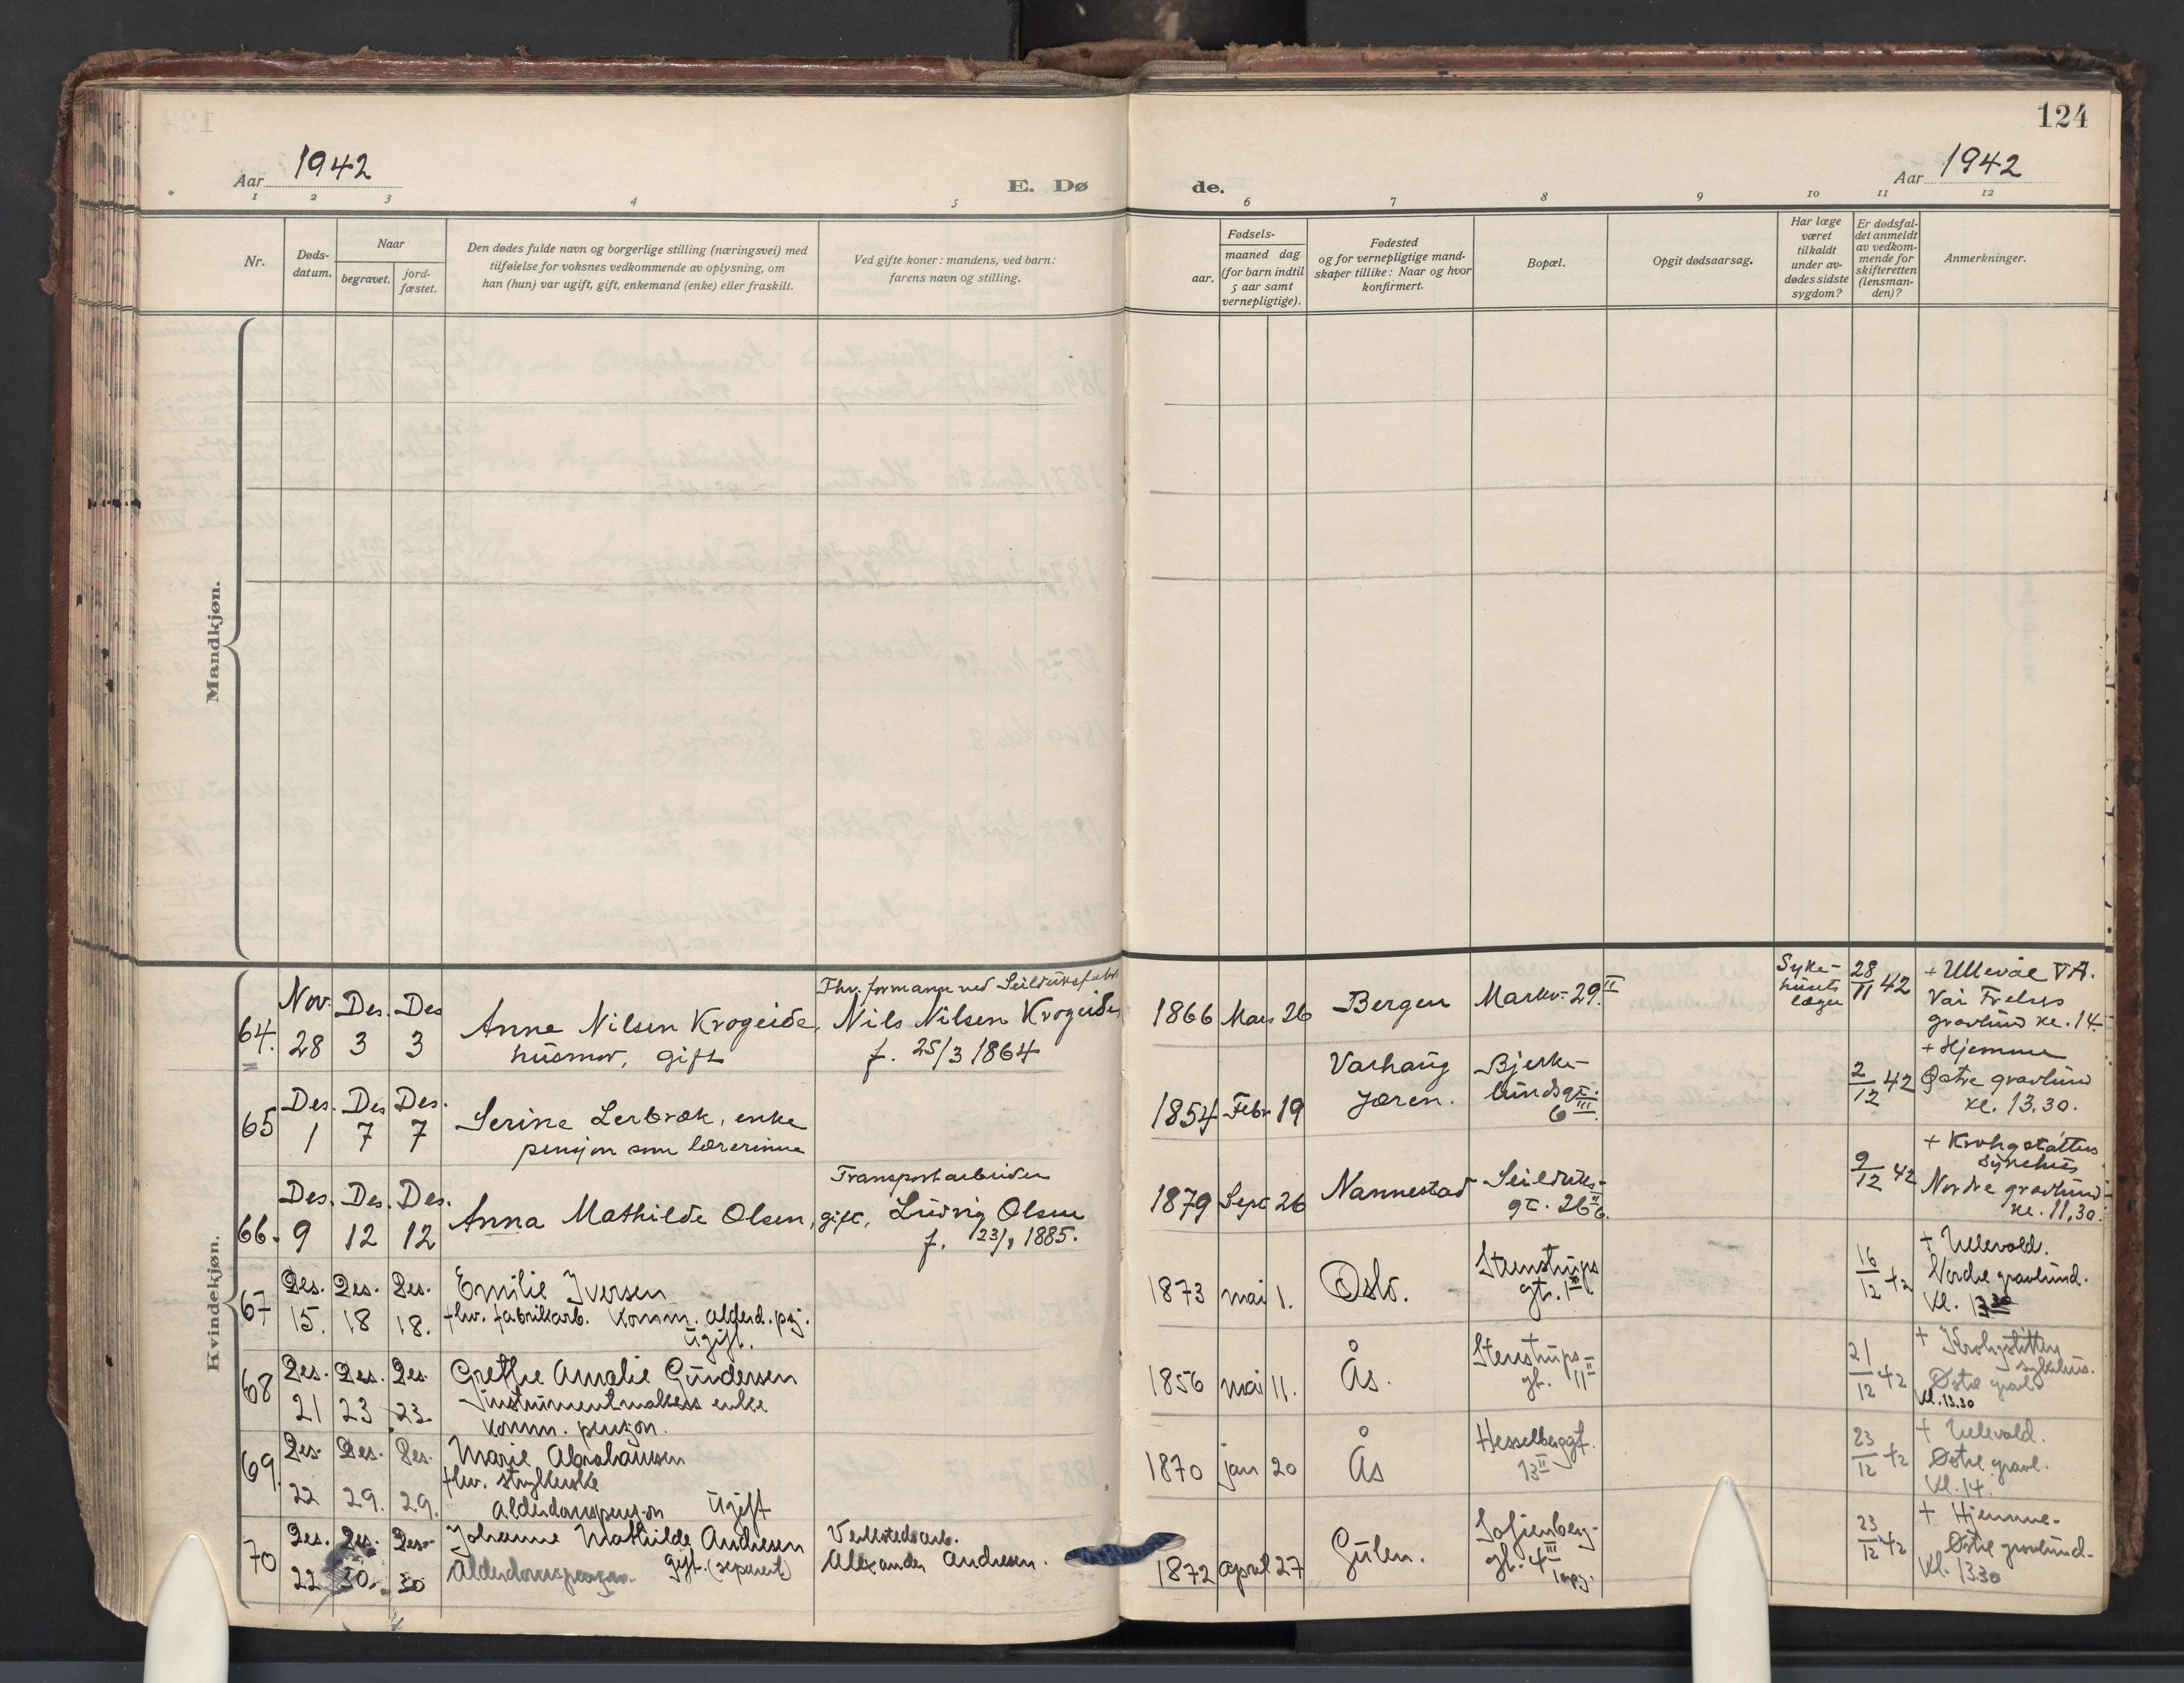 124
Aar 1942
E. Døde.
Aar 1942
1 2 3 4 5 6 7 8 9 10 11 12
Nr.
Døds-
datum.
Naar
begravet.
jord-
fæstet.
Den dødes fulde navn og borgerlige stilling (næringsvei) med
tilføielse for voksnes vedkommende av oplysning, om
han (hun) var ugift, gift, enkemand (enke) eller fraskilt.
Ved gifte koner: mandens, ved barn:
farens navn og stilling.
Fødsels-
aar.
maaned dag
(for barn indtil
5 aar samt
vernepligtige).
Fødested
og for vernepligtige mand-
skaper tillike: Naar og hvor
konfirmert.
Bopæl.
Opgit dødsaarsag.
Har læge
været
tilkaldt
under av-
dødes sidste
sygdom?
Er dødsfal-
det anmeldt
av vedkom-
mende for
skifteretten
(lensman-
den)?
Anmerkninger.
Mandkjøn.
Kvindekjøn.
64.
Nov. Des. Des
28 3 3
Anne Nilsen Krogeide,
husmor, gift
Fhv. formann ved Seilduksfabr.
Nils Nilsen Krogeide
f. 25/3 1864
1866 Mars 26
Bergen
Markv. 29 II
Syke-
husets
læge
28/11 42
+ Ullevål VA.
Vår Frelsers
gravlund kl. 14
65
Des. Des Des.
1 7 7
Serine Lerbræk, enke
pensjon som lærerinne
1854 Febr 19
Varhaug
Jæren.
Bjerke-
lundsgt.
6 III
2/12 42
+ Hjemme
Østre gravlund
kl. 13.30.
66.
Des. Des. Des.
9 12 12
Anna Mathilde Olsen, gift,
Transportarbeider
Ludvig Olsen
f. 23/8 1885.
1879 Sept 26
Nannestad
Seilduks-
gt. 26 II
9/12 42
+ Krohgstøttens
sykehus
Nordre gravlund
kl. 11,30.
67
Des. Des. Des.
15. 18 18.
Emilie Iversen
fhv. fabrikarb. Komm. alderd. psj.
ugift.
1873 mai 1.
Oslo.
Stenstrups
gt. 1 III
16/12 42
+ Ullevold.
Nordre gravlund.
Kl. 13 30
68
Des. Des. Des.
21 23 23.
Grethe Amalie Gundersen
Instrumentmakers enke
Komm. pensjon.
1856 mai 11.
Ås.
Stenstrups-
gt. 11 II
21/12 42
+ Krohgstøtten
sykehus.
Østre gravl.
Kl. 13.30
69.
Des. Des. Des.
22 29. 29.
Marie Abrahamsen
fhv. strykerske
Alderdomspensjon ugift
1870 jan 20
Ås
Hesselbergsgt.
13 II
23/12 42
+ Ullevold.
Østre gravl.
Kl. 14.
70
Des. Des. Des.
22 30. 30
Johanne Mathilde Andresen
Alderdomspensjon. gift. (separert)
Verkstedsarb.
Alexander Andresen.
1872 april 27
Gulen.
Sofienberg-
gt. 4 III
23/12 42
+ Hjemme.
Østre gravlund.
Kl. 13.30